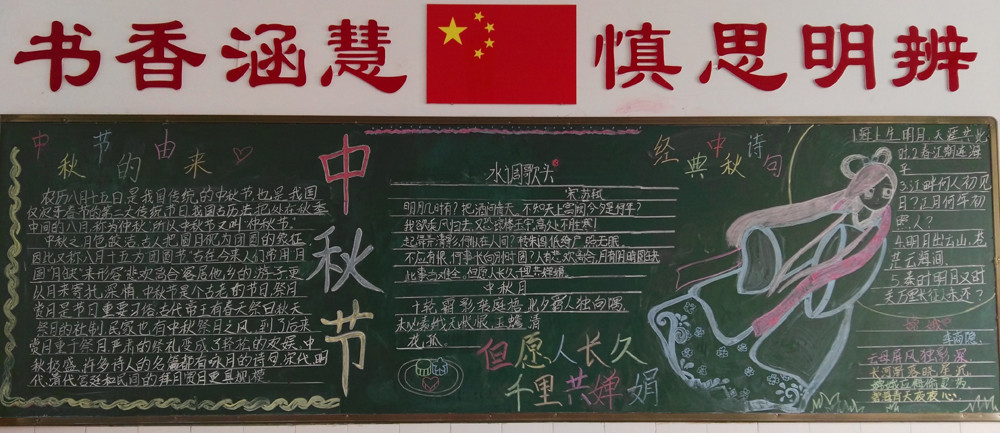 书香涵慧 慎思明辨
中秋节的由来
农历八月十五日是我国传统的中秋节也是我国
仅次于春节的第二大传统节日我国古历法把处在秋季
中间的八月称为仲秋所以中秋节又叫仲秋节。
中秋之月色故古人把圆月视为团圆的象征
因此又称八月十五为团圆节古往今来人们常用月
圆"月缺"来形容悲欢离合客居他乡的游子更
以月来寄托深情。中秋节是个古老的节日祭月
赏月是节日重要习俗古代帝王有春天祭日秋天
祭月的社制民家也有中秋祭月之风到了后来
赏月重于祭月严肃的祭礼变成了轻松的欢娱。中
秋极盛许多诗人的名篇都有咏月的诗句宋代明
代清代宫廷和民间的拜月赏月更具规模
中秋节
水调歌头
宋苏轼
明月几时有？把酒问青天。不知天上宫阙今夕是何年？
我欲乘风归去
起舞弄清影何似在人间？转朱阁低绮户照无眠。
不应有恨何事长向别时圆？人有悲欢离合月有阴晴圆缺
此事古难全。但愿人长久千里共婵娟。
中秋月
十轮霜影转庭梧此夕羁人独向隅
未必素娥无怅恨玉蟾清
冷桂花孤。
但愿人长久
千里共婵娟
经典中秋诗句
1.海上生明月,天涯共此
时.2.春江潮连海
平
3.江畔何人初见
月？江月何年初
照人？
4.明月出天山，苍
茫云海间
5.秦时明月汉时
关万里长征人未还？
嫦娥
李商隐
云母屏风烛影深
长河渐落晓星沉
嫦娥应悔偷灵药
碧海青天夜夜心